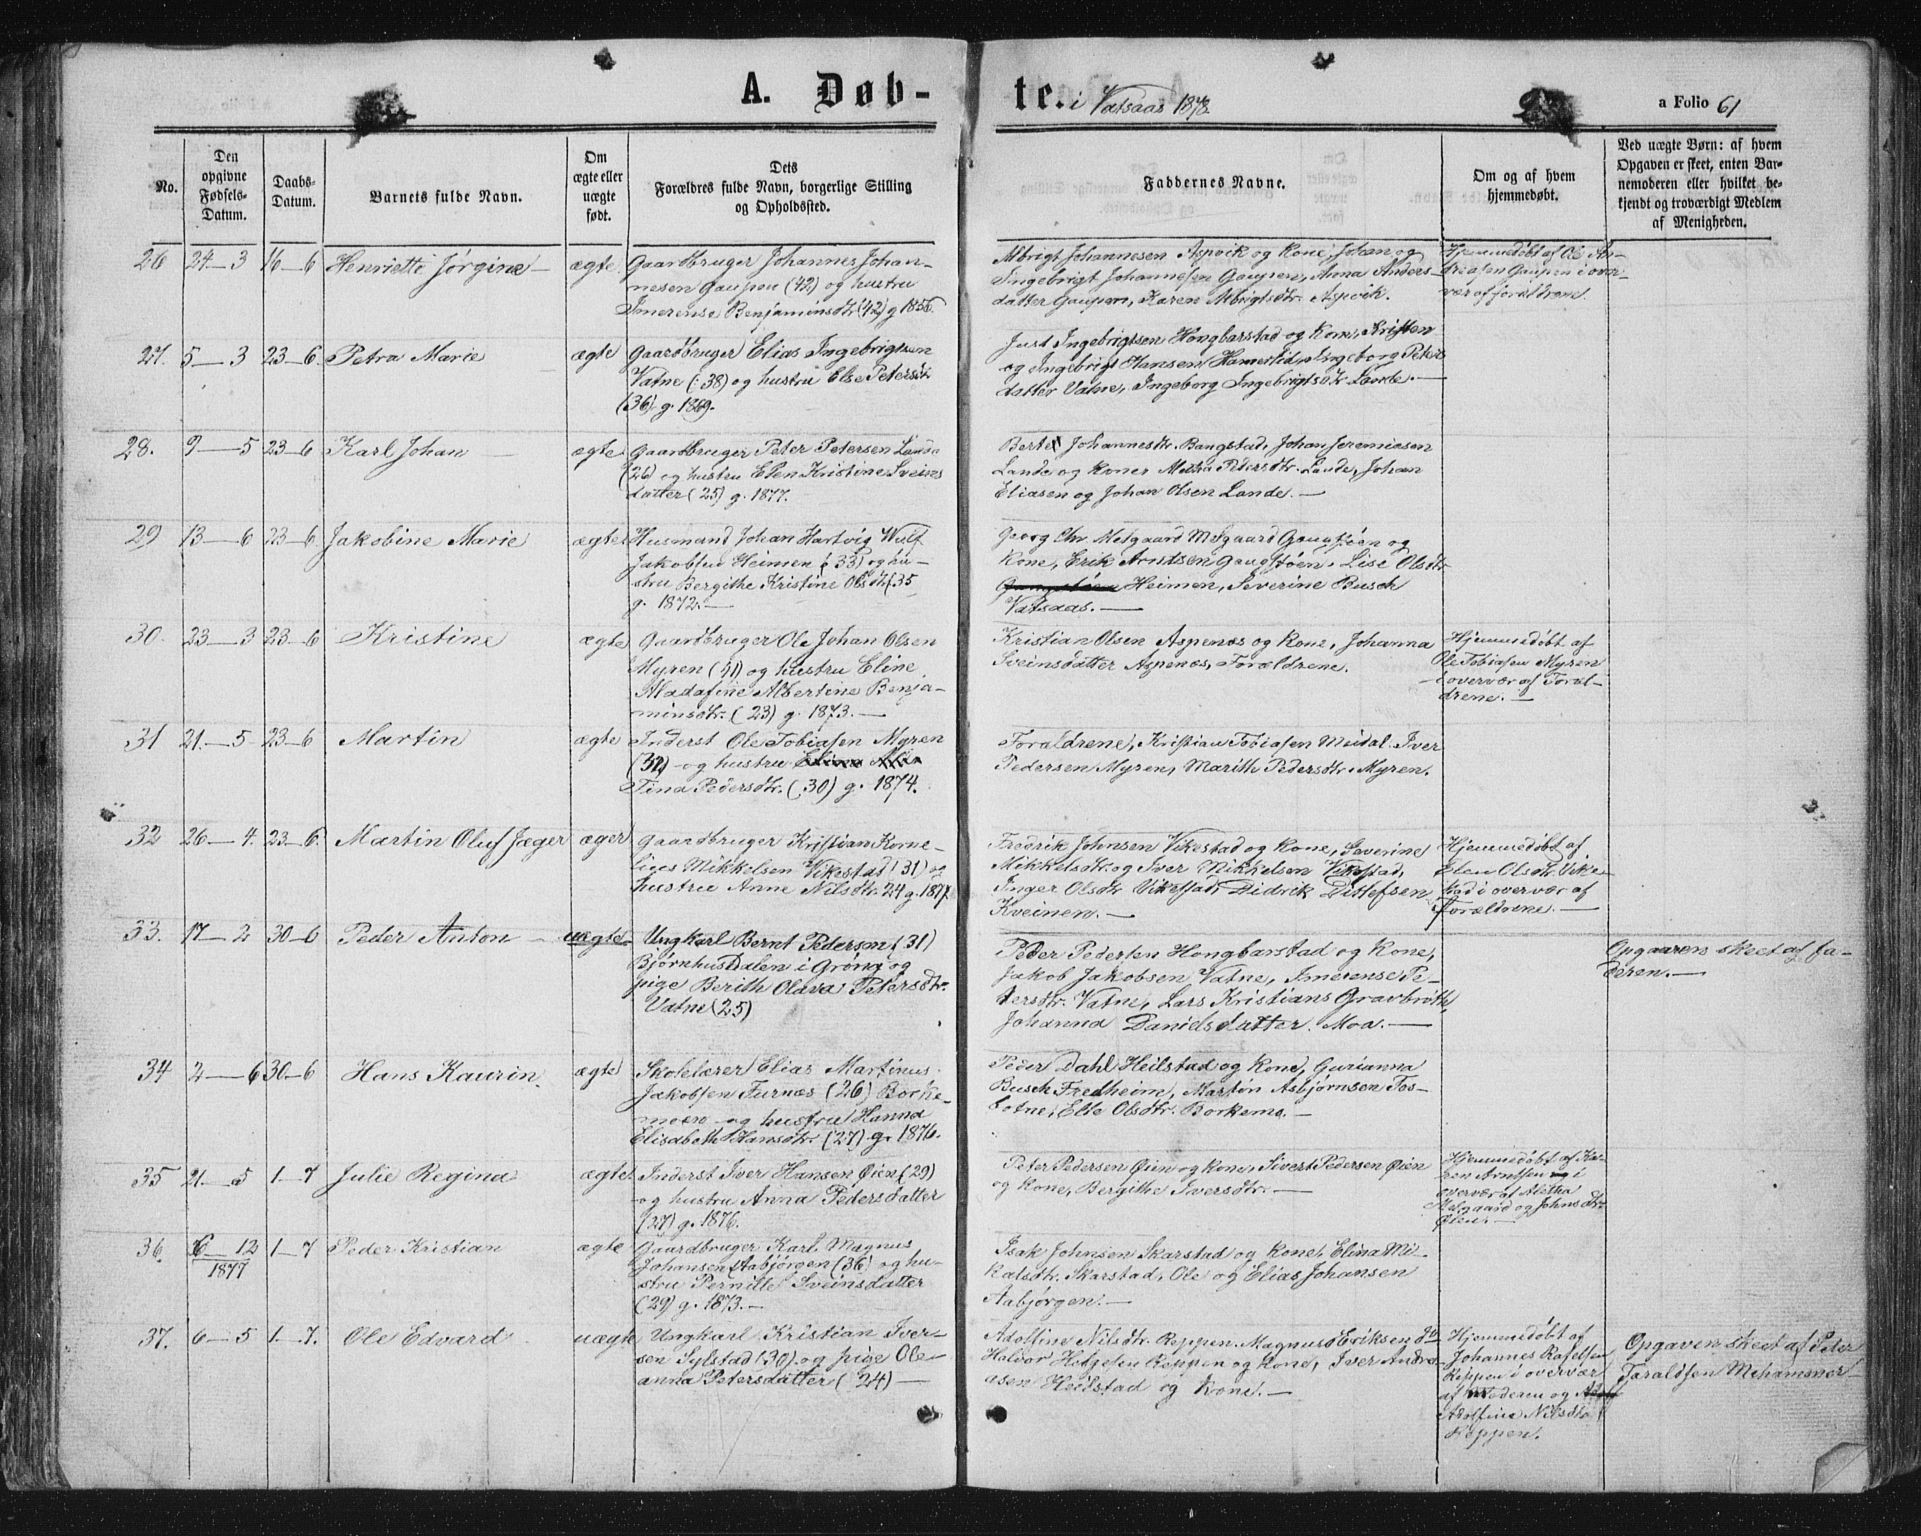 A. Døb-
te. i Vatsaas 1878
a Folio 61
No.
Den opgivne Fødsels-Datum.
Daabs-Datum.
Barnets fulde Navn.
Om ægte eller uægte født.
Dets Forældres fulde Navn, borgerlige Stilling og Opholdssted.
Faddernes Navne.
Om og af hvem hjemmedøbt.
Ved uægte Børn: af hvem Opgaven er skeet, enten Barnemoderen eller hvilket bekjendt og troværdigt Medlem af Menigheden.
26 24–3 16–6 Henriette Jørgine – ægte
Gaardbruger Johannes Johan-
nesen Gaupen (42) og hustru
Imerense Benjaminsdtr (42) g 1856.
Albrigt Johannesen Aspvik og Kone, Johan og
Ingebrigt Johannesen Gaupen, Anna Anders-
datter Gaupen, Karen Albrigtsdtr. Aspvik.
Hjemmedøbt af Ole An-
dreasen Gaupen i over-
vær af foraldrene.
27. 5–3 23–6. Petra Marie ægte
Gaardbruger Elias Ingebrigtsen
Vatne (38) og hustru Else Petersdtr
(36) g. 1869.
Just Ingebrigtsen Hongbarstad og Kone, Kristen
og Ingebrigt Hansen Hamerlid, Ingeborg Peters
datter Vatne, Ingeborg Ingebrigtsdtr Lande. –
28. 9–5 23–6 Karl Johan – ægte
Gaardbruger Peter Petersen Lande
(26) og hustru Elen Kristine Sveins
datter (25) g. 1877.
Berte Johannesdtr. Bangstad, Johan Jeremiasen
Lande og Koner Metha Pedersdtr. Lande, Johan
Eliasen og Johan Olsen Lande. –
29 13–6 23–6 Jakobine Marie ægte
Husmand Johan Hartvig Wulf
Jakobsen Heimen (33) og hu-
stru Bergithe Kristine Olsdtr (35
g. 1872. –
Georg Chr. Melgaard Melgaard Gangstøen og
Kone, Erik Arntsen Gangstøen, Lise Olsdtr
Gangstøen Heimen, Severine Busch
Vatsaas. –
30. 23–3 23–6 Kristine ægte
Gaardbruger Ole Johan Olsen
Myren (41) og hustru Eline
Madafine Albertine Benja-
minsdtr. (23) g. 1873. –
Kristian Olsen Aspenæs og Kone, Johanna
Sveinsdatter Aspenæs, Forældrene.
Hjemmedøbt af
Ole Tobiasen Myren
i overvær af Foræl-
drene. –
31 21.–5 23–6 Martin ægte
Inderst Ole Tobiasen Myren
(32) – og hustru
Tina Pedersdtr. (30) g. 1874.
Foraldrene, Kristian Tobiasen Meidal. Iver
Pedersen Myren, Marith Pedersdtr. Myren.
32 26–4. 23–6. Martin Oluf Jæger æger
Gaardbruger Kristian Korne-
lius Mikkelsen Vikestad (31) og
hustru Anne Nilsdtr. 24 g. 1877.
Fredrik Johnsen Vikestad og Kone, Severine
Mikkelsdtr. og Iver Mikkelsen Vikestad,
Inger Olsdtr Vikestad, Didrik Ditlefsen
Kveinen. –
Hjemmedøbt af
Elen Olsdtr. Vike-
stad i overvær af
Forældrene. –
33. 17–2 30–6 Peder Anton – uægte
Ungkarl Bernt Pedersen (31)
Bjørnhusdalen i Grong og
pige Berith Olava Petersdtr.
Vatne (25)
Peder Pedersen Hongbarstad og Kone,
Jakob Jakobsen Vatne, Imerense Pe-
dersdtr. Vatne, Lars Kristians Gravbrøth,
Johanna Danielsdatter Moa. –
Opgaaven skeet af Fa-
deren. –
34 2–6 30–6 Hans Kaurin. ægte
Skolelærer Elias Martinus
Jakobsen Furnæs (26) Borke-
moen og hustru Hanna
Elisabeth Hansdtr. (27) g. 1876.
Peder Dahl Heilstad og Kone, Gurianna
Busch Fredheim, Martin Asbjørnsen Fos-
botne, Else Olsdtr. Borkemo. –
35 21–5 1–7 Julie Regina ægte
Inderst Iver Hansen Øien (29)
og hustru Anna Pedersdatter
(27) g. 1876.
Peter Pedersen Øien og Kone, Sivert Pedersen Øien
og Kone, Bergithe Iversdtr. –
Hjemmedøbt af
Arntsen i
overvær af Aletha
Melgaard og
Øien. –
36. 6–12 1877 1–7 Peder Kristian ægte
Gaardbruger Karl Magnus
Johansen Aabjørgen (36) og hu-
stru Pernille Sveinsdatter
(29) g. 1873. –
Isak Johnsen Skarstad og Kone, Elina Mi-
kalsdtr. Skarstad, Ole og Elias Johansen
Aabjørgen. –
37. 6–5 1.–7. Ole Edvard uægte
Ungkarl Kristian Iver-
sen Sylstad (30) og pige Ole-
anna Petersdatter (24) –
Adolfine Nilsdtr. Reppen, Magnus Eriksen
Halvor Helgesen Reppen og Kone, Iver Andre-
asen Heilstad og Kone. –
Hjemmedøbt af
Johannes Rafelsen
Reppen i overvær
af Moderen og
Adolfine Nilsdtr
Reppen.
Opgaven skeet af Peter
Taraldsen